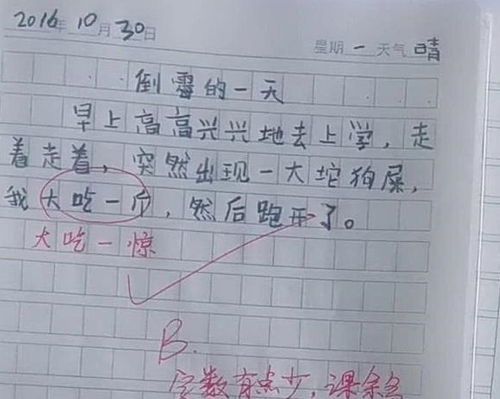 2016年10月30日
星期一 天气 晴
倒霉的一天
早上高高兴兴地去上学，走
着走着，突然出现一大坨狗屎，
我大吃一斤，然后跑开了。
大吃一惊
B.
字数有点少，课余